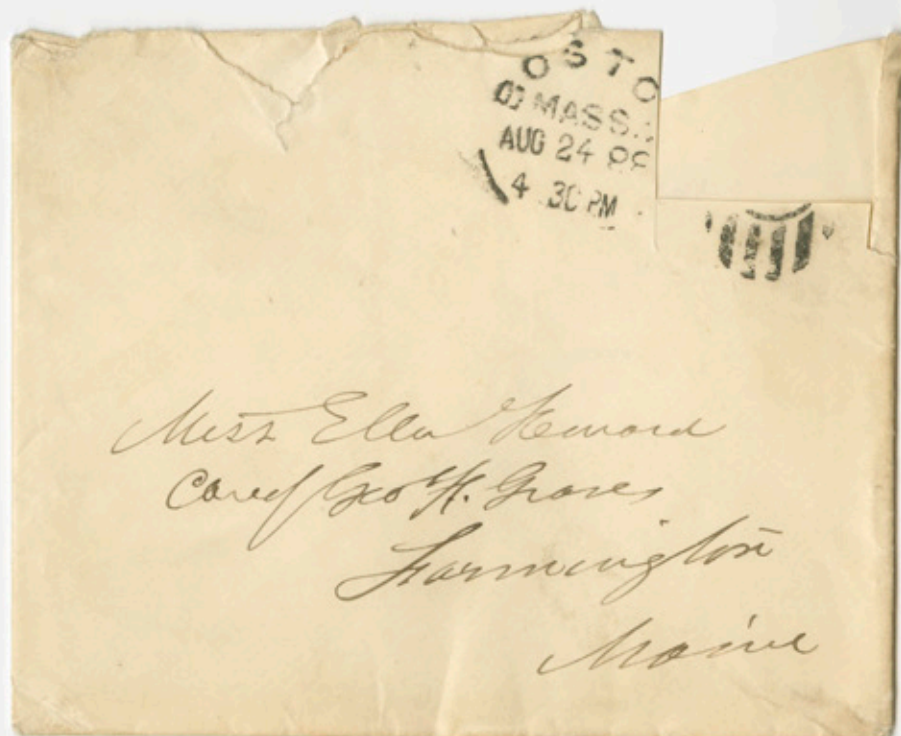 OSTO
MASS.
AUG 24 88
4 30 PM
Miss Ella
Care of Geo H. Graves
Farmington
Maine